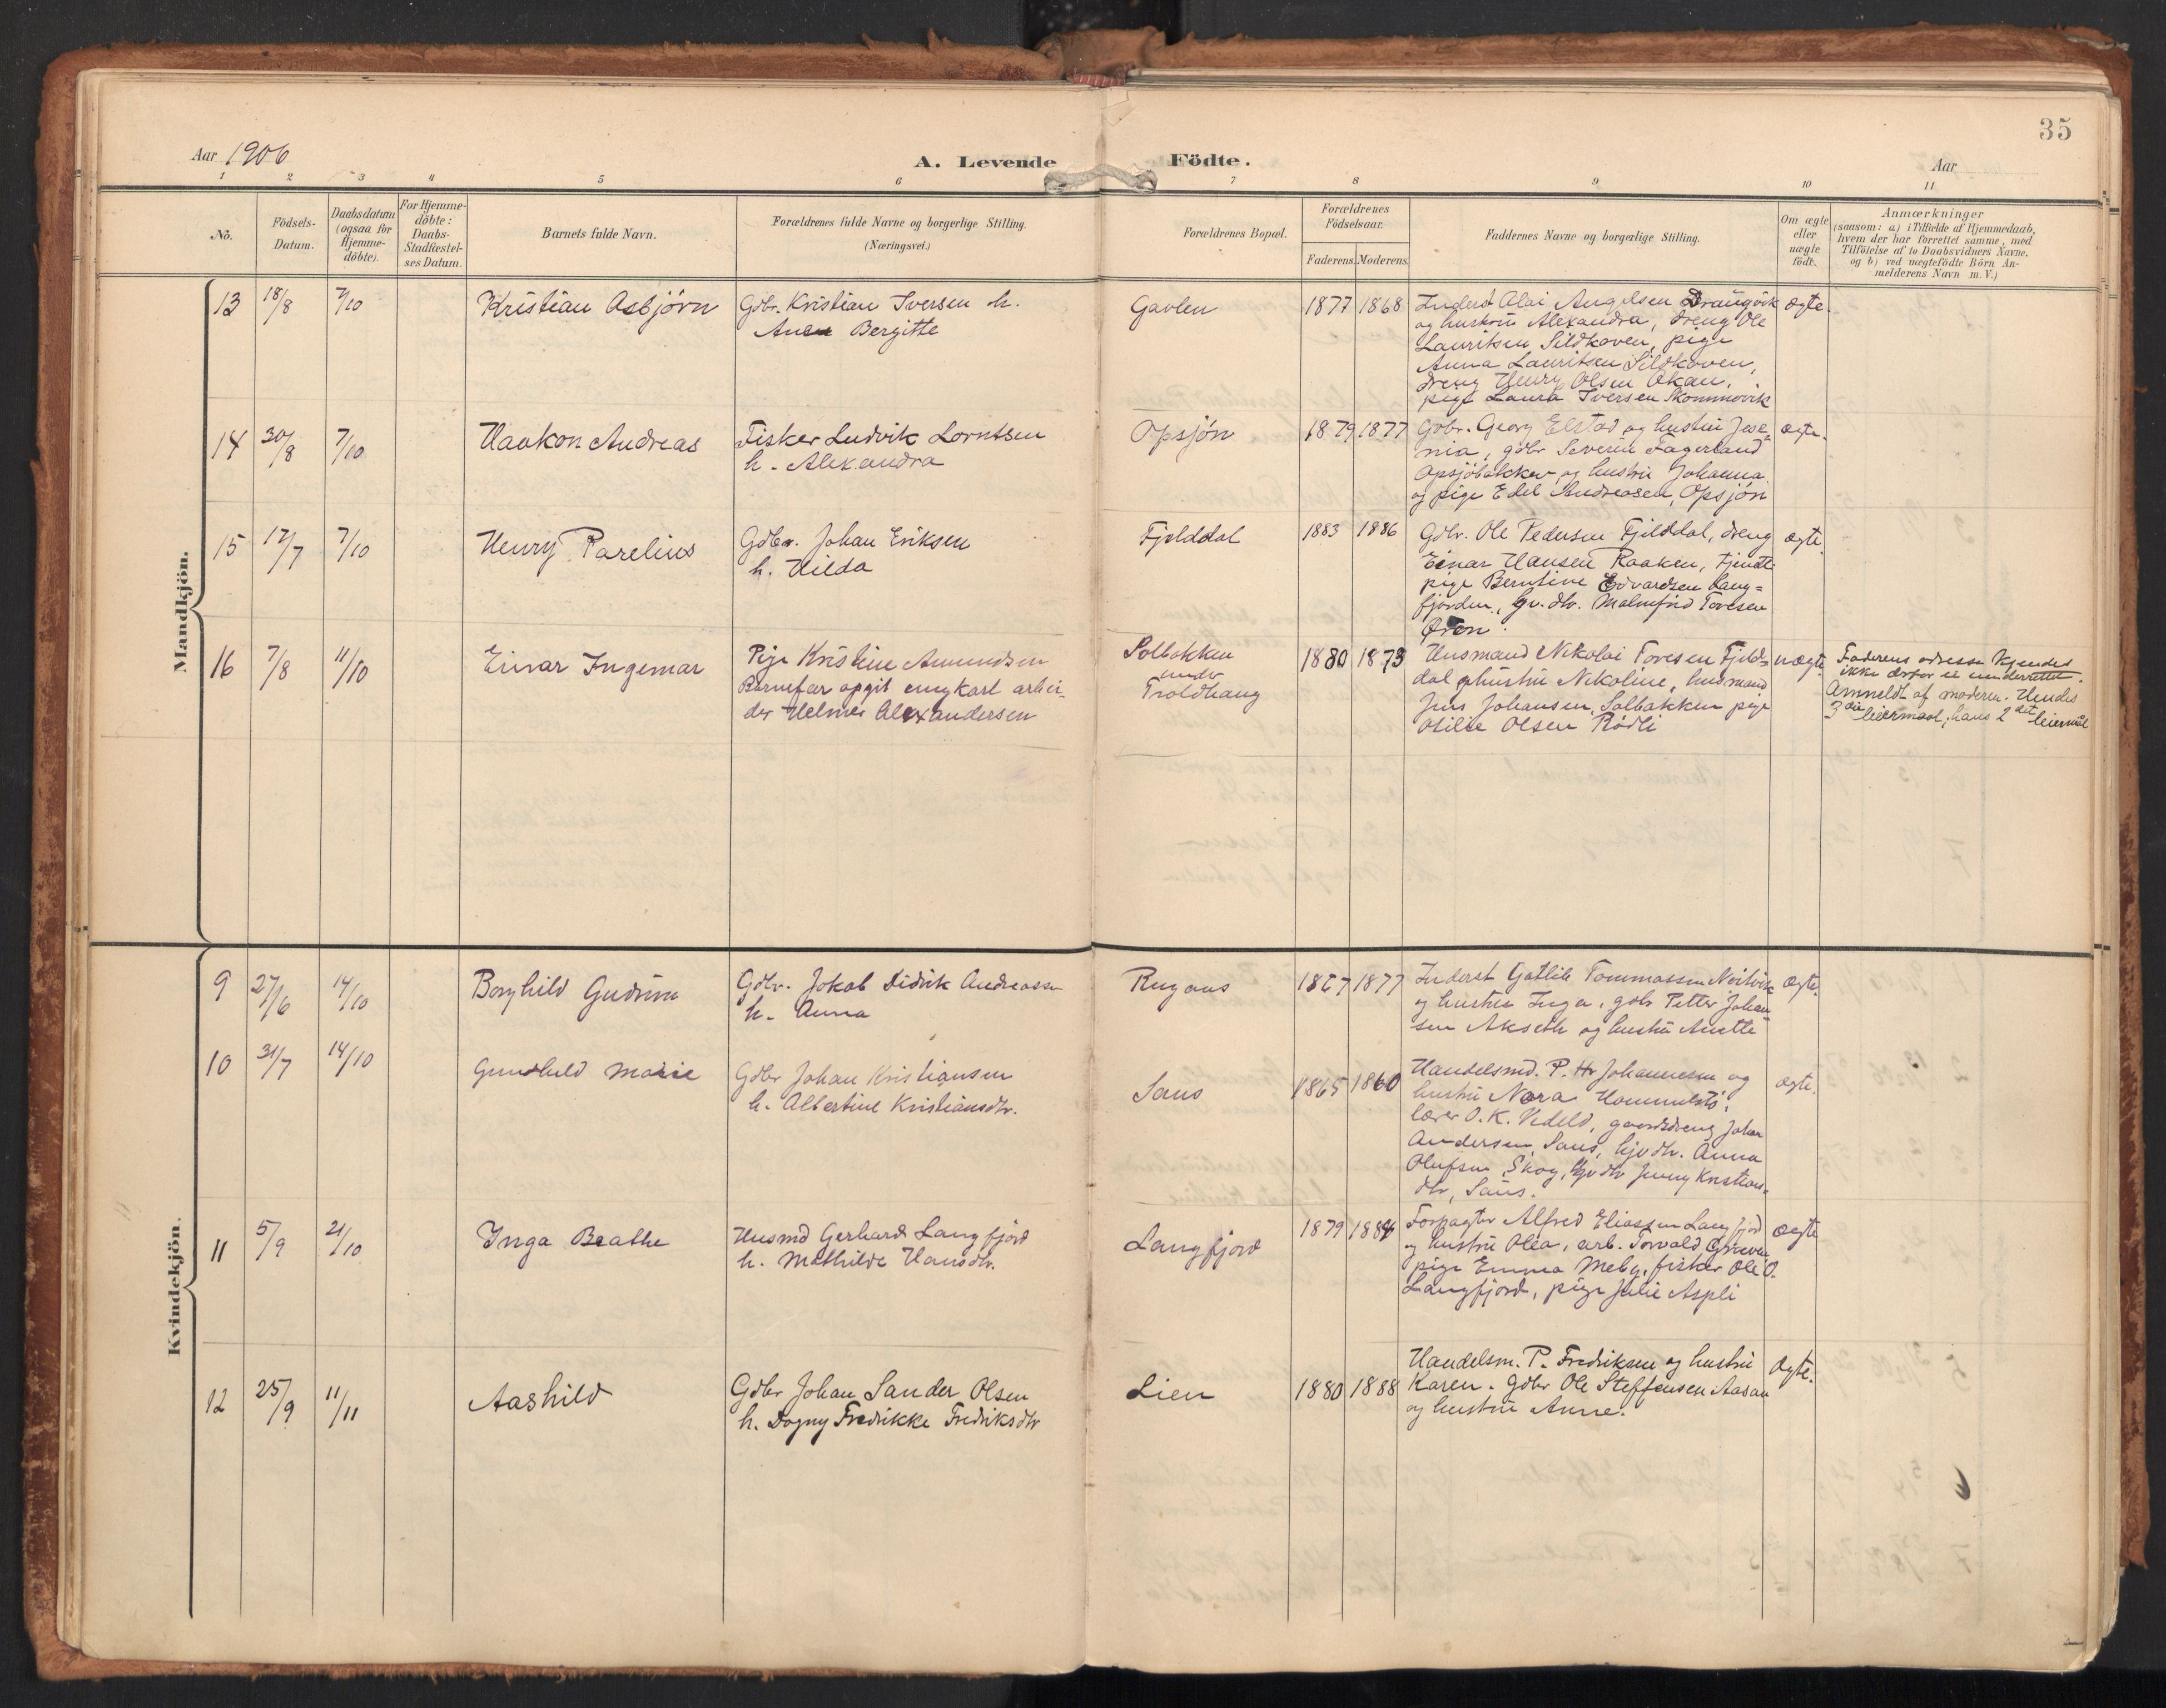 35
Aar 1906
A. Levende Födte.
Aar
1 2 3 4 5 6 7 8 9 10 11
No.
Födsels-
Datum.
Daabsdatum
(ogsaa for
Hjemme-
döbte).
For Hjemme-
döbte:
Daabs-
Stadfæstel-
ses Datum.
Barnets fulde Navn.
Forældrenes fulde Navne og borgerlige Stilling.
(Næringsvei.)
Forældrenes Bopæl.
Forældrenes
Födselsaar.
Faderens. Moderens.
Faddernes Navne og borgerlige Stilling.
Om ægte
eller
uægte
födt.
Anmærkninger
(saasom: a) i Tilfælde af Hjemmedaab,
hvem der har forrettet samme, med
Tilföielse af to Daabsvidners Navne.
og b) ved uægtefödte Börn An-
melderens Navn m. V.)
Mandkjön.
13 18/8 7/10 Kristian Asbjörn
Gdbr. Kristian Iversen h.
Anna Bergitte
Gavlen 1877 1868
Inderst Olai Angelsen Drangvik
og hustru Alexandra, dreng Ole
Lauritsen Sildhoven, pige
Anna Lauritsen Sildhoven,
dreng Henry Olsen Okan,
pige Laura Iversen Skommovik
ægte.
14 30/8 7/10 Haakon Andreas
Fisker Ludvik Lorntsen
h. Alexandra
Opsjön 1879 1877
Gdbr. Georg Elstad og hustru Jose-
nia, gdbr Severin Fagerland
Opsjöbakken og hustru Johanna
og pige Edel Andreasen, Opsjön
ægte.
15 17/7 7/10 Henry Parelius
Gdbr. Johan Eriksen
h. Hilda
Fjelddal 1883 1886
Gdbr. Ole Pedersen Fjelddal, dreng
Einar Hansen Raaken, tjenest-
pige Berntine Edvardsen Lang-
fjorden, gv. dtr. Malmfrid Toresen
Øren.
ægte.
16 7/8 11/10 Einar Ingemar
Pige Kristine Amundsen
Barnefar opgit ungkarl arbei-
der Helmer Alexandersen
Solbakken
under
Troldhaug
1880 1873
Husmand Nikolai Toresen Fjeld-
dal og hustru Nikoline, husmand
Jens Johansen, Solbakken pige
Otilie Olsen Rödli
uægte.
Faderens adresse kjendes
ikke derfor ei underrettet.
Anmeldt af moderen. Hendes
3die leiermaal, hans 2det leiermål
Kvindekjön.
9 27/6 14/10 Borghild Gudrun
Gdbr. Jokob Didrik Andreassen
h. Anna
Rugaas 1867 1877
Inderst Gotlib Tommassen Neitvik
og hustru Inga, gdbr Petter Johan-
sen Akseth og hustru Anette
ægte.
10 31/7 14/10 Gunhild Marie
Gdbr Johan Kristiansen
h. Albertine Kristiansdtr.
Saus 1865 1860
Handelsmd. P. Hr Johannesen og
hustru Nora Hommelstö,
lærer O. K. Vedeld, gaardsdreng Johan
Andersen, Saus, hjv dtr. Anna
Olufsen, Skog, hjv dtr Jenny Kristians-
dtr, Saus.
ægte.
11 5/9 21/10 Inga Beathe
Husmd Gerhard Langfjord
h. Mathilde Hansdtr.
Langfjord 1879 1884
Forpagter Alfred Eliassen Langfjord
og hustru Olea, arb. Torvald
pige Emma Meby, fisker Ole O.
Langfjord, pige Julie Aspli
ægte
12 25/9 11/11 Aashild
Gdbr Johan Sander Olsen
h. Dagny Fredrikke Fredriksdtr
Lien 1880 1888
Handelsm. P. Fredriksen og hustru
Karen. Gdbr Ole Steffensen Aasan
og hustru Anne.
ægte.